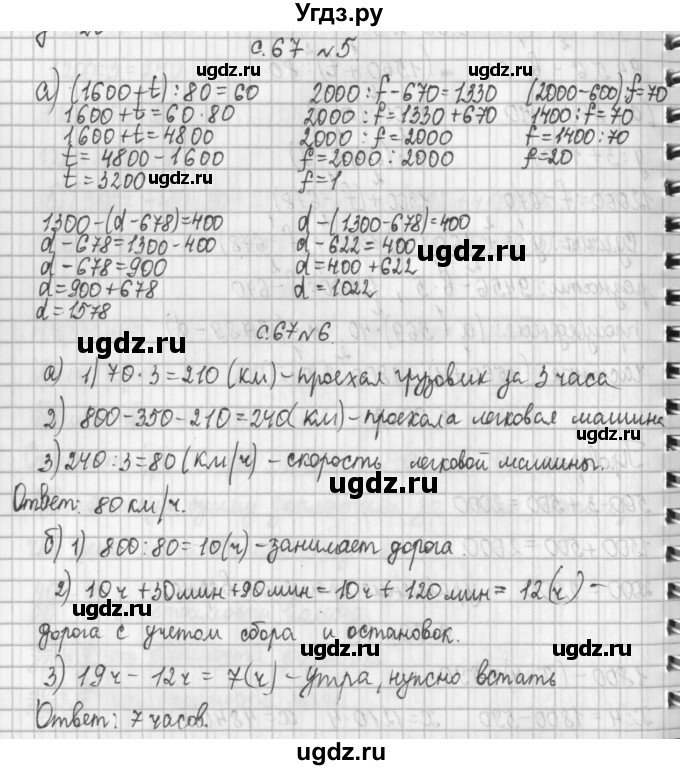 Угдз.ру
с.67 №5
а) (1600+t):80=60
1600+t=60·80
1600+t=4800
t=4800-1600
t=3200
2000:f-670=1330
2000:f=1330+670
2000:f=2000
f=2000:2000
f=1
(2000-600):f=70
1400:f=70
f=1400:70
f=20
1300-(d-678)=400
d-678=1300-400
d-678=900
d=900+678
d=1578
d-(1300-678)=400
d-622=400
d=400+622
d=1022
с.67 №6
а) 1) 70·3=210 (км)-проехал грузовик за 3 часа
2) 800-350-210=240(км)-проехала легковая машина
3) 240:3=80 (км/ч) -скорость легковой машины.
Ответ: 80 км/ч.
б) 1) 800:80=10(ч)-занимает дорога.
2) 10ч+30мин+90мин=10ч+120мин=12(ч)-
дорога с учетом сбора и остановок.
3) 19ч-12ч=7(ч)-утра, нужно встать
Ответ: 7 часов.
ugdz.ru
ugdz.ru
ugdz.ru
ugdz.ru
ugdz.ru
ugdz.ru
ugdz.ru
ugdz.ru
ugdz.ru
ugdz.ru
ugdz.ru
ugdz.ru
ugdz.ru